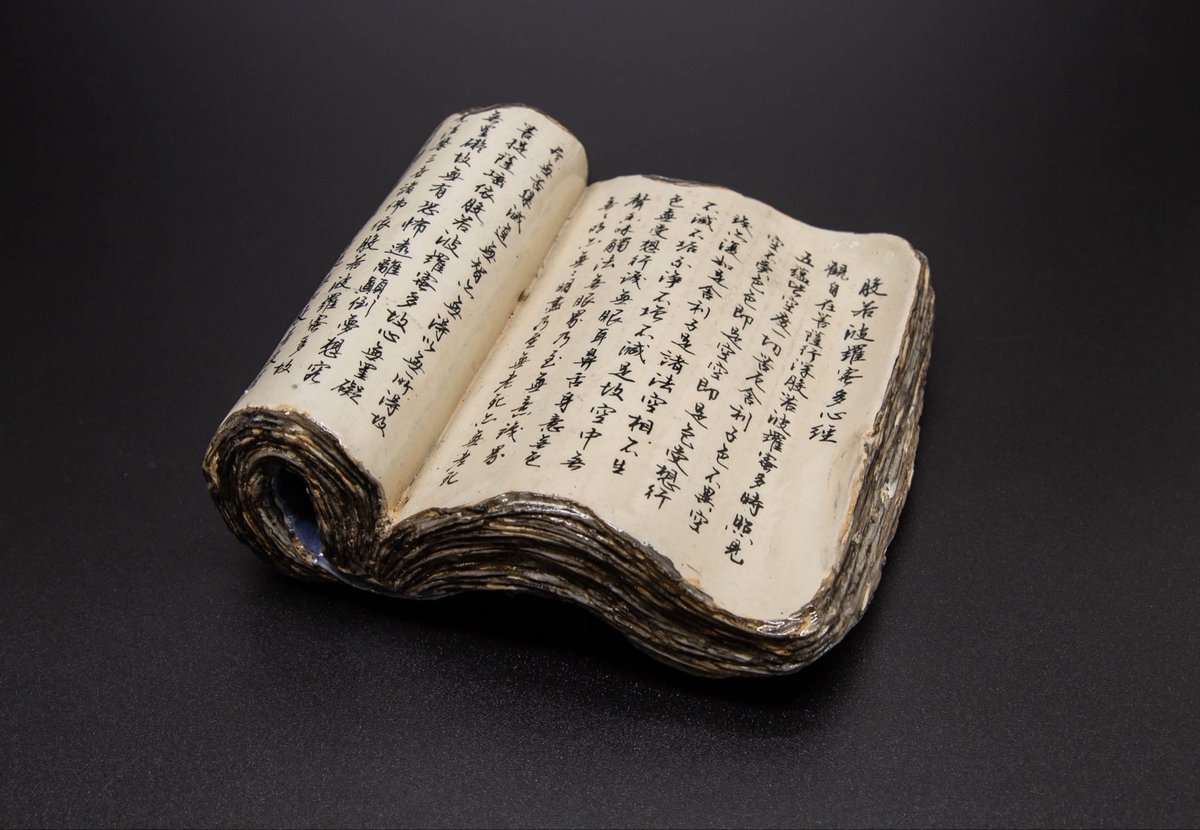 般若波羅密多心經
觀自在菩薩行深般若波羅密多時照見
五蘊皆空度一切苦厄舍利子色不異空
空不異色色即是空空即是色受想行
識亦復如是舍利子是諸法空相不生
不滅不垢不淨不增不減是故空中無
色無受想行識無眼耳鼻舌身意無色
聲香味觸法無眼界乃至無意識界
無無明亦無無明盡乃至無老死亦無老死
盡無苦集滅道無智亦無得以無所得故
菩提薩埵依般若波羅密多故心無罣礙
無罣礙故無有恐怖遠離顛倒夢想究
竟涅槃三世諸佛依般若波羅密多故